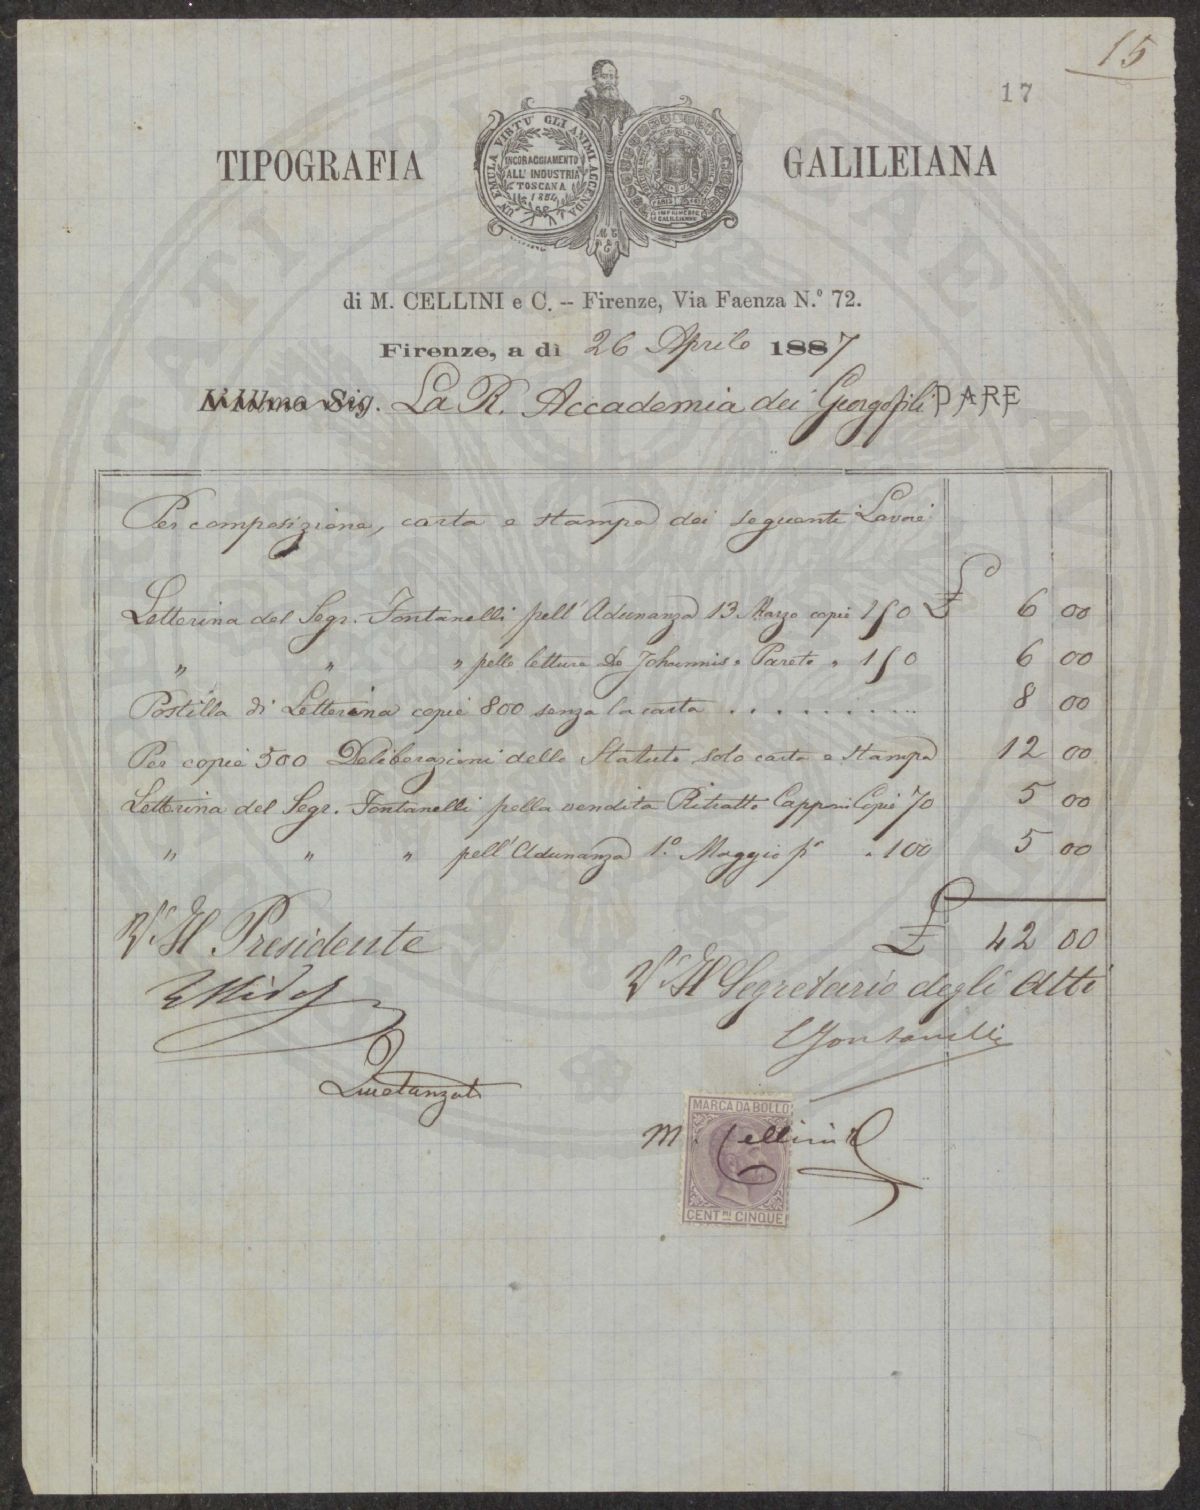 15
17
TIPOGRAFIA GALILEIANA
UN EMULA VIRTU' GLI ANIMI ACCENDA
INCORAGGIAMENTO
ALL' INDUSTRIA
TOSCANA
1854
IMPRIMERIE
GALILEIANNE
di M. CELLINI e C. -- Firenze, Via Faenza N.º 72.
Firenze, a dì 26 Aprile 1887
L'Illmo Sig. La R. Accademia dei Georgofili DARE
Per composizione, carta e stampa dei seguenti Lavori
Letterina del Segr. Fontanelli pell'Adunanza 13 Marzo copie 150 £ 6 00
" " " pelle letture De Johannis e Pareto " 150 6 00
Postilla di Letterina copie 800 senza la carta . . . . . . . . . 8 00
Per copie 500 Deliberazioni dello Statuto solo carta e stampa 12 00
Letterina del Segr. Fontanelli pella vendita Ritratto Capponi Copie 70 5 00
" " " pell'Adunanza 1.º Maggio pº " 100 5 00
£ 42 00
Vº Il Presidente
Vº Il Segretario degli Atti
C Fontanelli
Quietanzato
MARCA DA BOLLO
M. Cellini
CENT.MI CINQUE